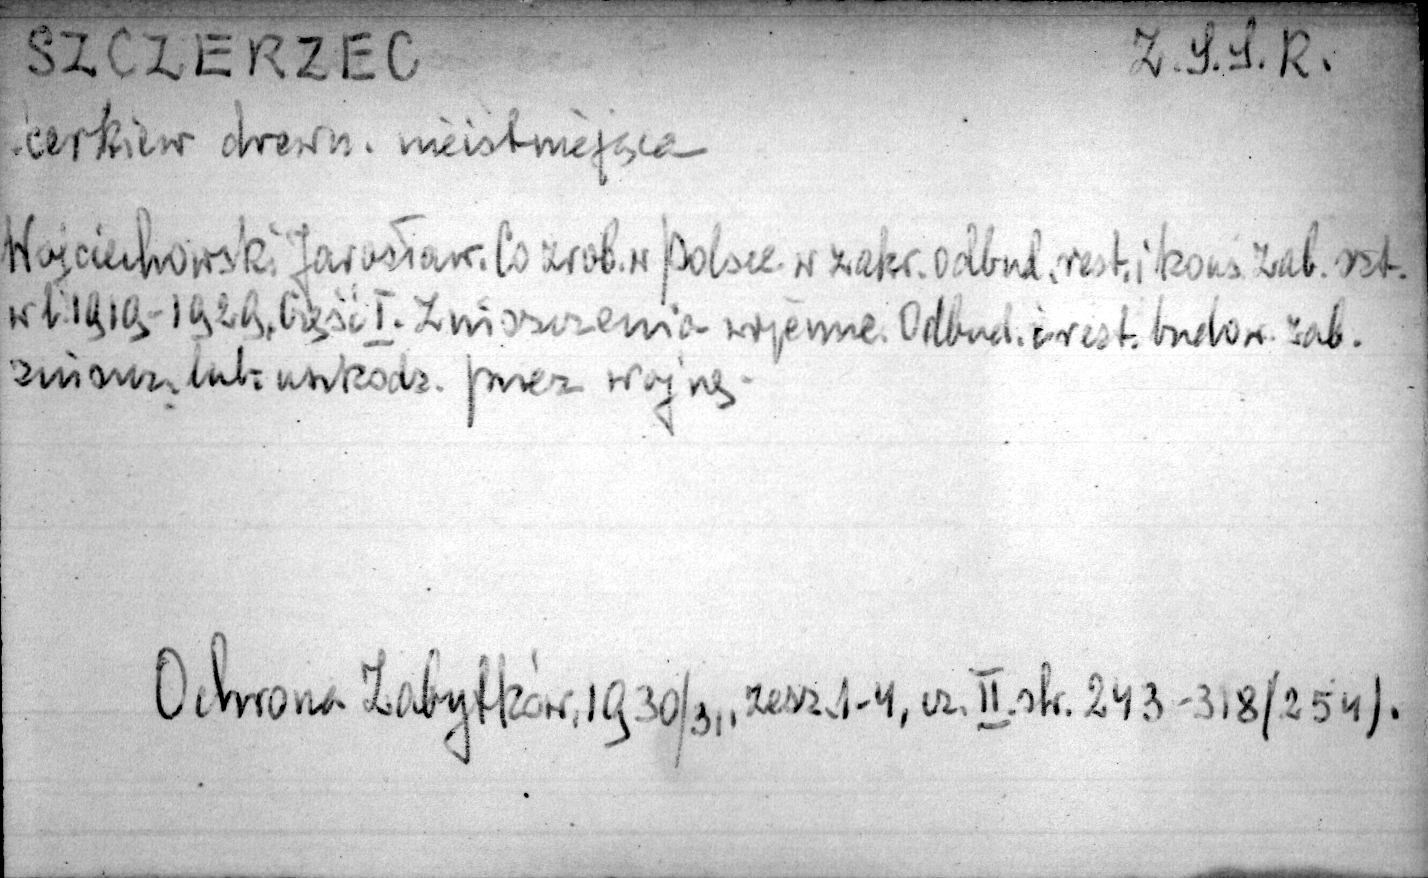 SZCZERZEC Z.S.S.R.
cerkiew drewn. nieistniejąca
Wojciechowski Jarosław. Co zrob. w Polsce w zakr. odbud., rest. i kons. zab. szt.
w l. 1919-1929. Część I. Zniszczenia wojenne. Odbud. i rest. budow. zab.
zniszcz. lub uszkodz. przez wojnę.
Ochrona Zabytków, 1930/31, zesz. 1-4, cz. II. str. 243-318 (254).